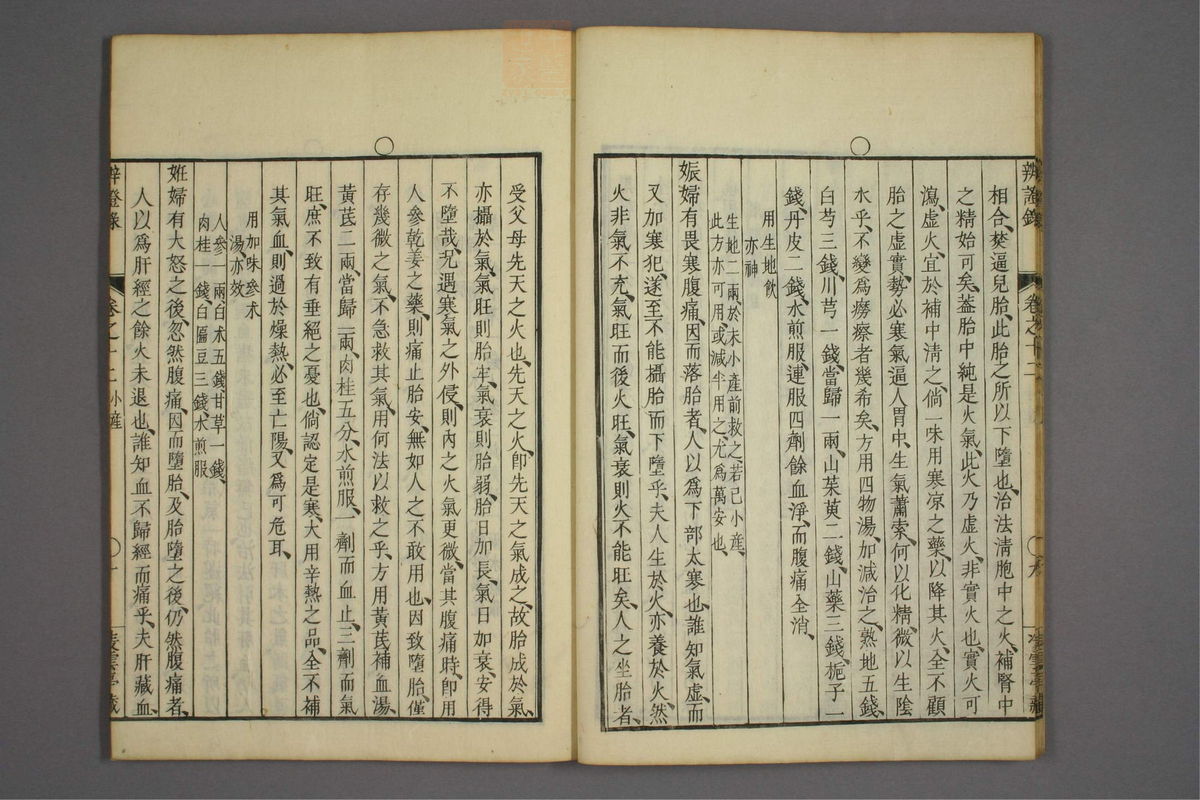 辨證錄 卷之十二 九
相合、焚逼兒胎、此胎之所以下墮也、治法淸胞中之火、補腎中
之精始可矣、葢胎中純是火氣、此火乃虚火、非實火也、實火可
瀉、虚火、宜於補中淸之、倘一味用寒凉之藥、以降其火、全不顧
胎之虚實、勢必寒氣逼人胃中、生氣蕭索、何以化精微、以生陰
水乎、不變爲癆瘵者幾希矣、方用四物湯、加減治之、熟地五錢、
白芍三錢、川芎一錢、當歸一兩、山茱萸二錢、山藥三錢、梔子一
錢、丹皮二錢、水煎服、連服四劑、餘血淨、而腹痛全消、
用生地飲
亦神
生地二兩、於未小產前救之、若已小產、
此方亦可用、或減半用之、尤爲萬安也、
娠婦有畏寒腹痛、因而落胎者、人以爲下部太寒也、誰知氣虚而
又加寒犯、遂至不能攝胎而下墮乎、夫人生於火、亦養於火、然
火非氣不充、氣旺而後火旺、氣衰則火不能旺矣、人之坐胎者、
受父母先天之火也、先天之火、卽先天之氣成之、故胎成於氣、
亦攝於氣、氣旺則胎牢、氣衰則胎弱、胎日加長、氣日加衰、安得
不墮哉、况遇寒氣之外侵、則內之火氣更微、當其腹痛時、卽用
人參乾姜之藥、則痛止胎安、無如人之不敢用也、因致墮胎、僅
存幾微之氣、不急救其氣、用何法以救之乎、方用黃芪補血湯、
黃芪二兩、當歸一兩、肉桂五分、水煎服、一劑而血止、三劑而氣
旺、庶不致有垂絕之憂也、倘認定是寒、大用辛熱之品、全不補
其氣血、則過於燥熱、必至亡陽、又爲可危耳、
用加味參术
湯、亦效
人參一兩白术五錢甘草一錢、
肉桂一錢、白扁豆三錢、水煎服
姙婦有大怒之後、忽然腹痛、因而墮胎、及胎墮之後、仍然腹痛者、
人以爲肝經之餘火未退也、誰知血不歸經而痛乎、夫肝藏血、
辨證錄 卷之十二 小產